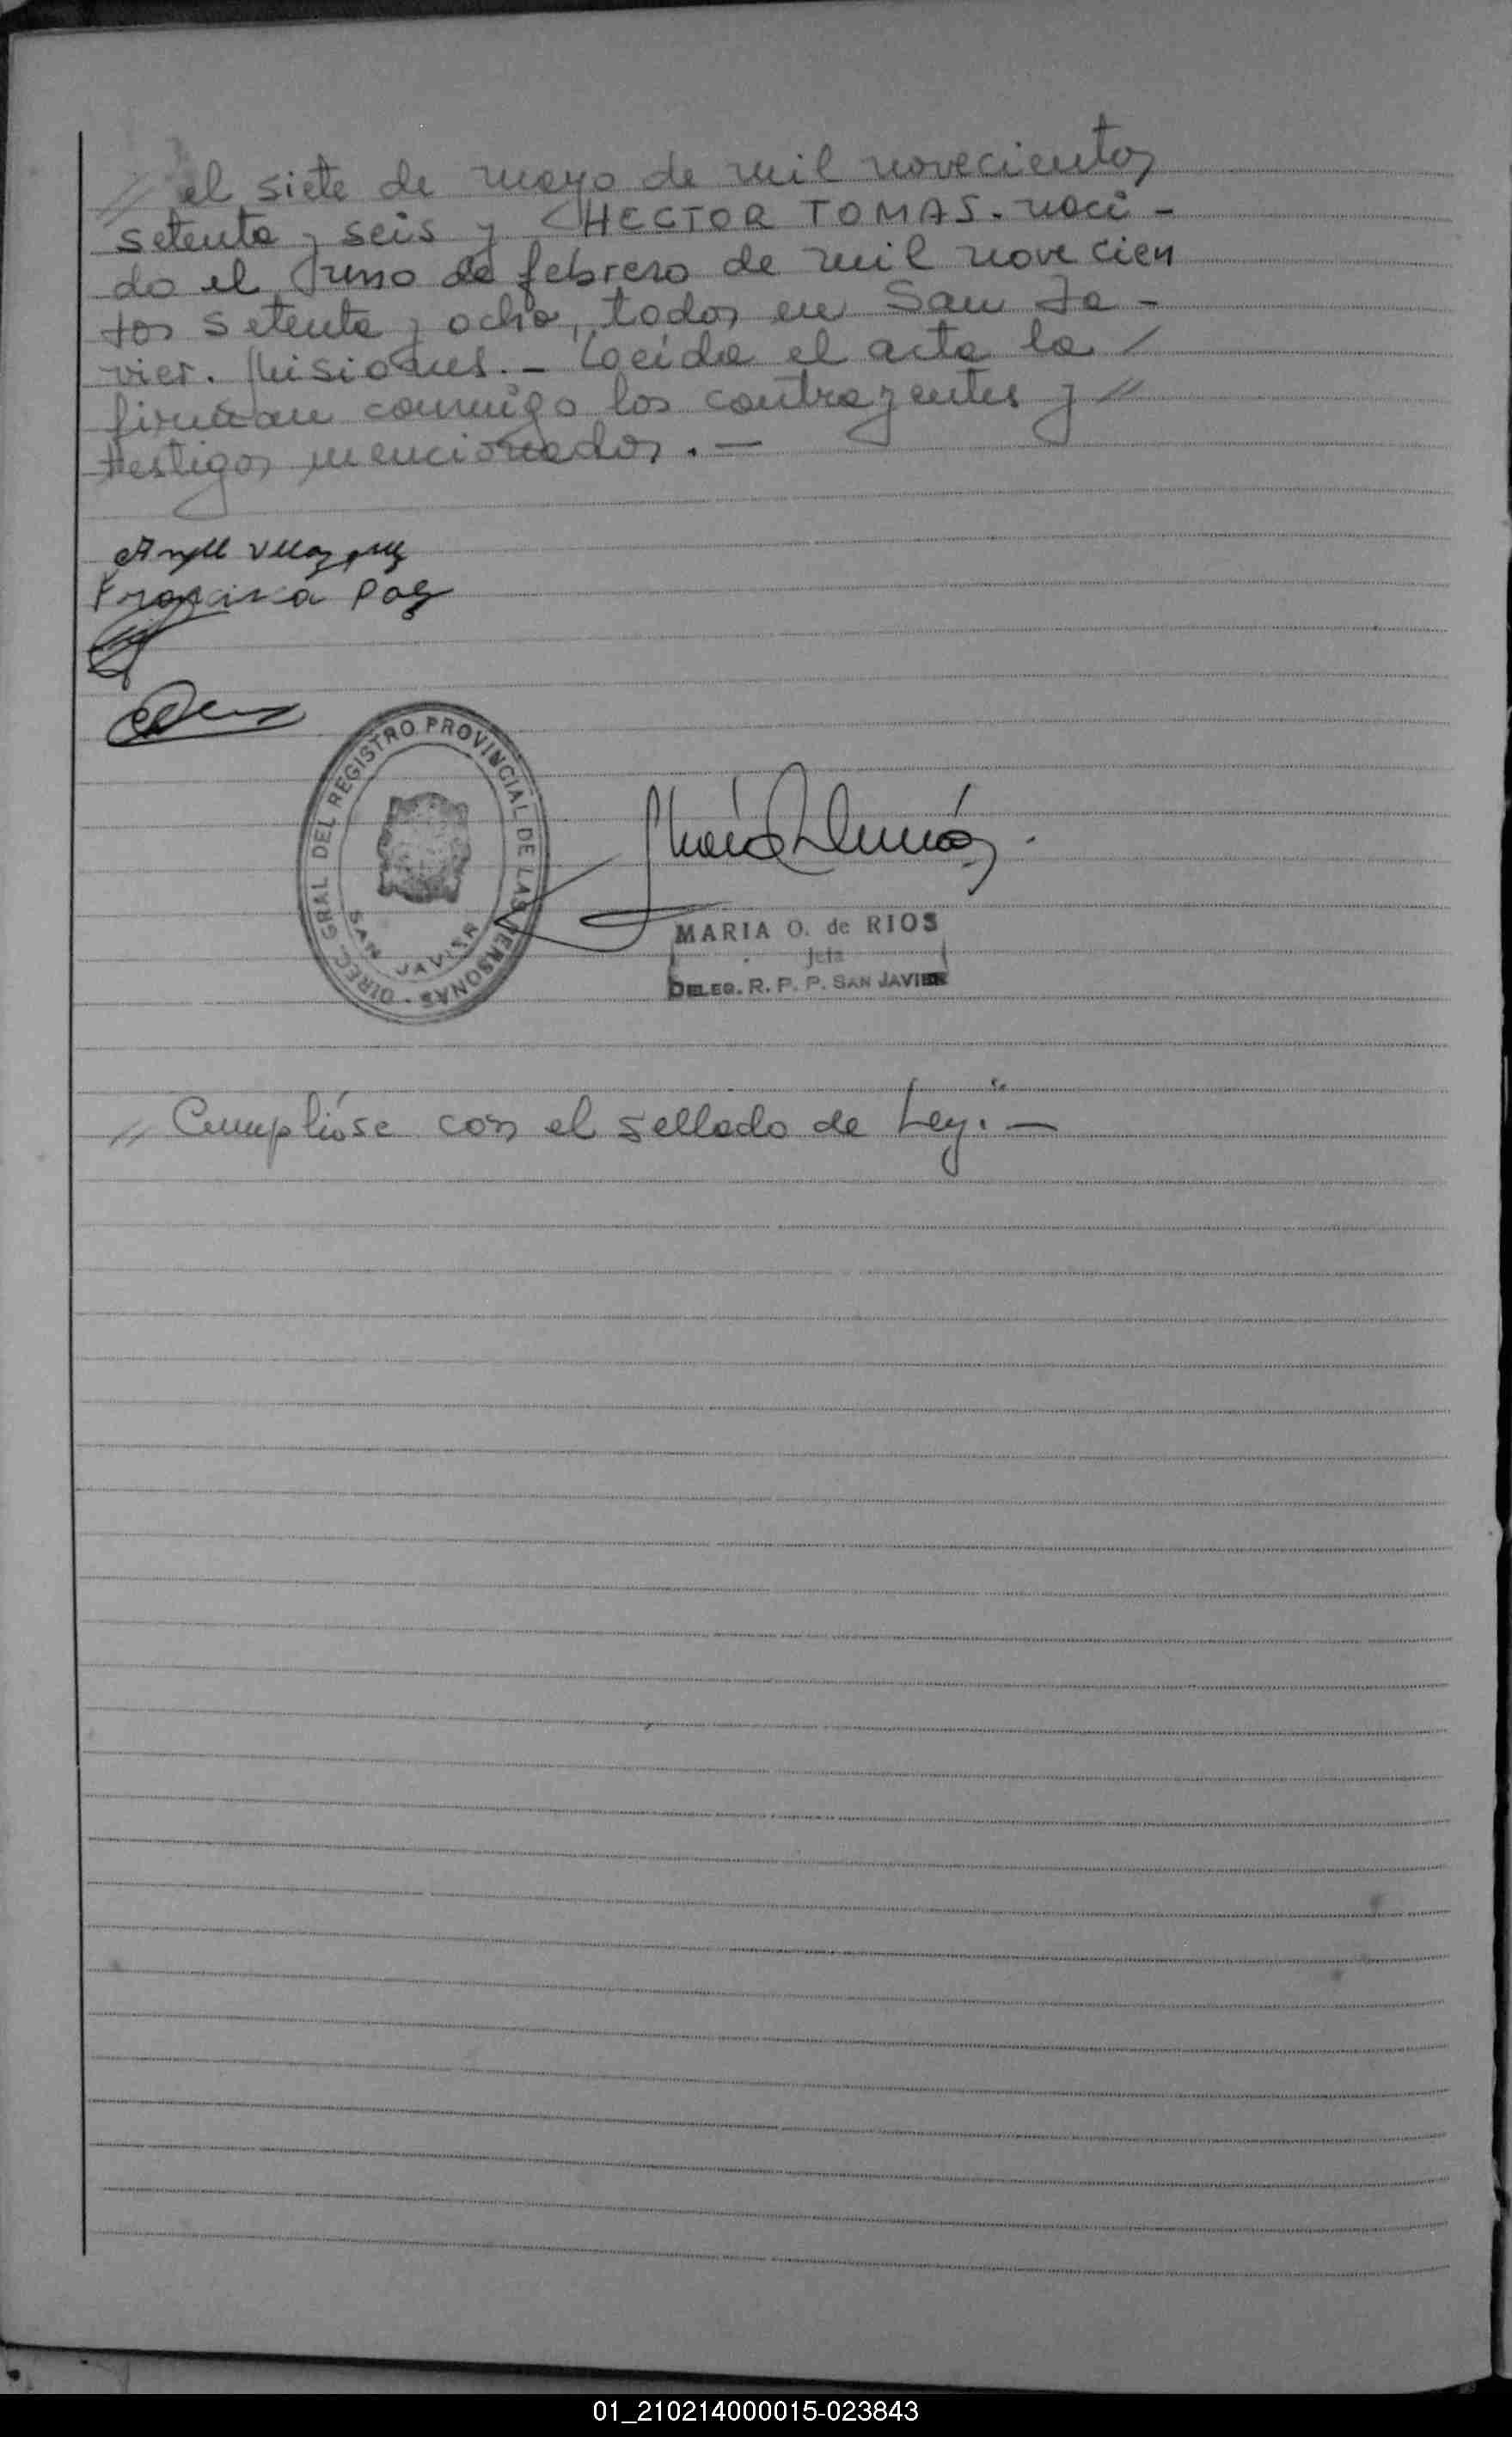 // el siete de mayo de mil novecientos
setenta y seis y HECTOR TOMAS. naci -
do el uno de febrero de mil novecien
tos setenta y ocho, todos en San Ja -
vier. Misiones. - Leída el acta la /
firman conmigo los contrayentes y //
testigos mencionados. —
Angel Velazquez
Francisca Paz
DIREC. GRAL DEL REGISTRO PROVINCIAL DE LAS PERSONAS -
SAN JAVIER
MARIA O. de RIOS
Jefa
DELEG. R. P. P. SAN JAVIER
// Cumplióse con el sellado de Ley. —
01_210214000015-023843